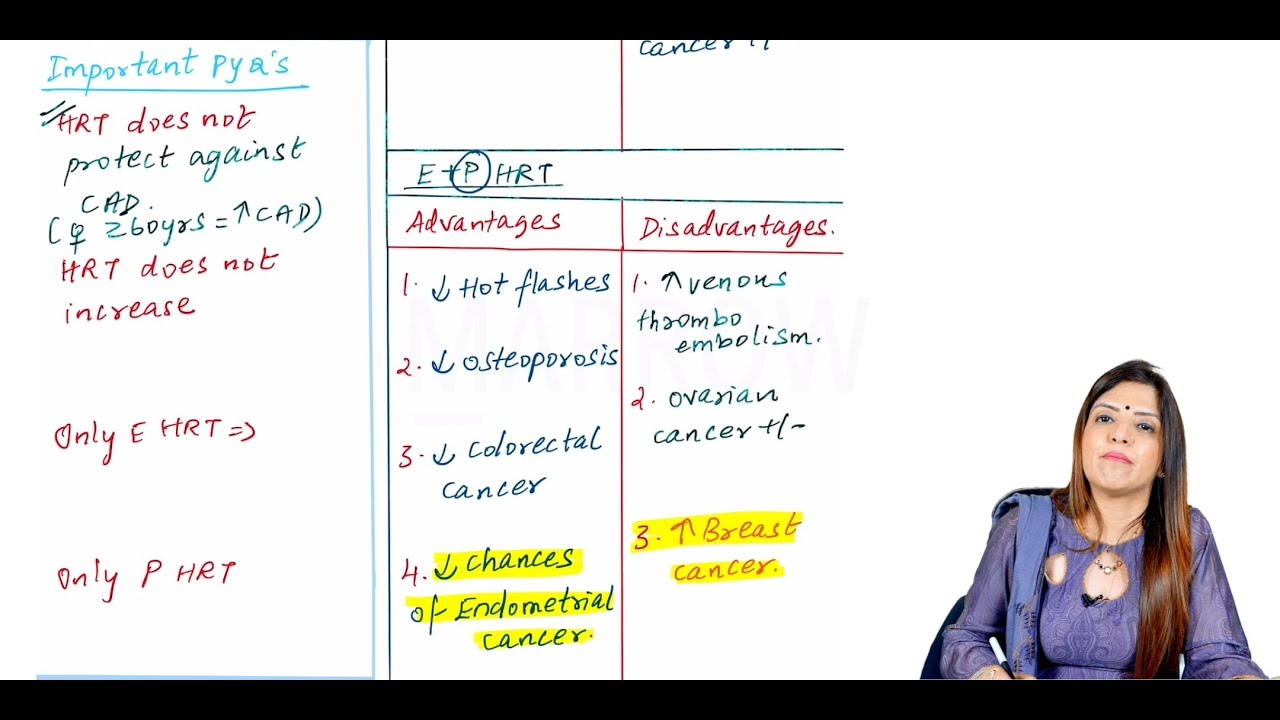 Important PYQ's
HRT does not
protect against
CAD.
(♀ ≥60yrs = ↑ CAD)
HRT does not
increase
Only E HRT ⇒
Only P HRT
cancer +/-
E + P HRT
Advantages
1. ↓ Hot flashes
2. ↓ Osteoporosis
3. ↓ Colorectal
cancer
4. ↓ Chances
of Endometrial
cancer.
Disadvantages.
1. ↑ venous
thrombo
embolism.
2. ovarian
cancer +/-
3. ↑ Breast
cancer.
MARROW